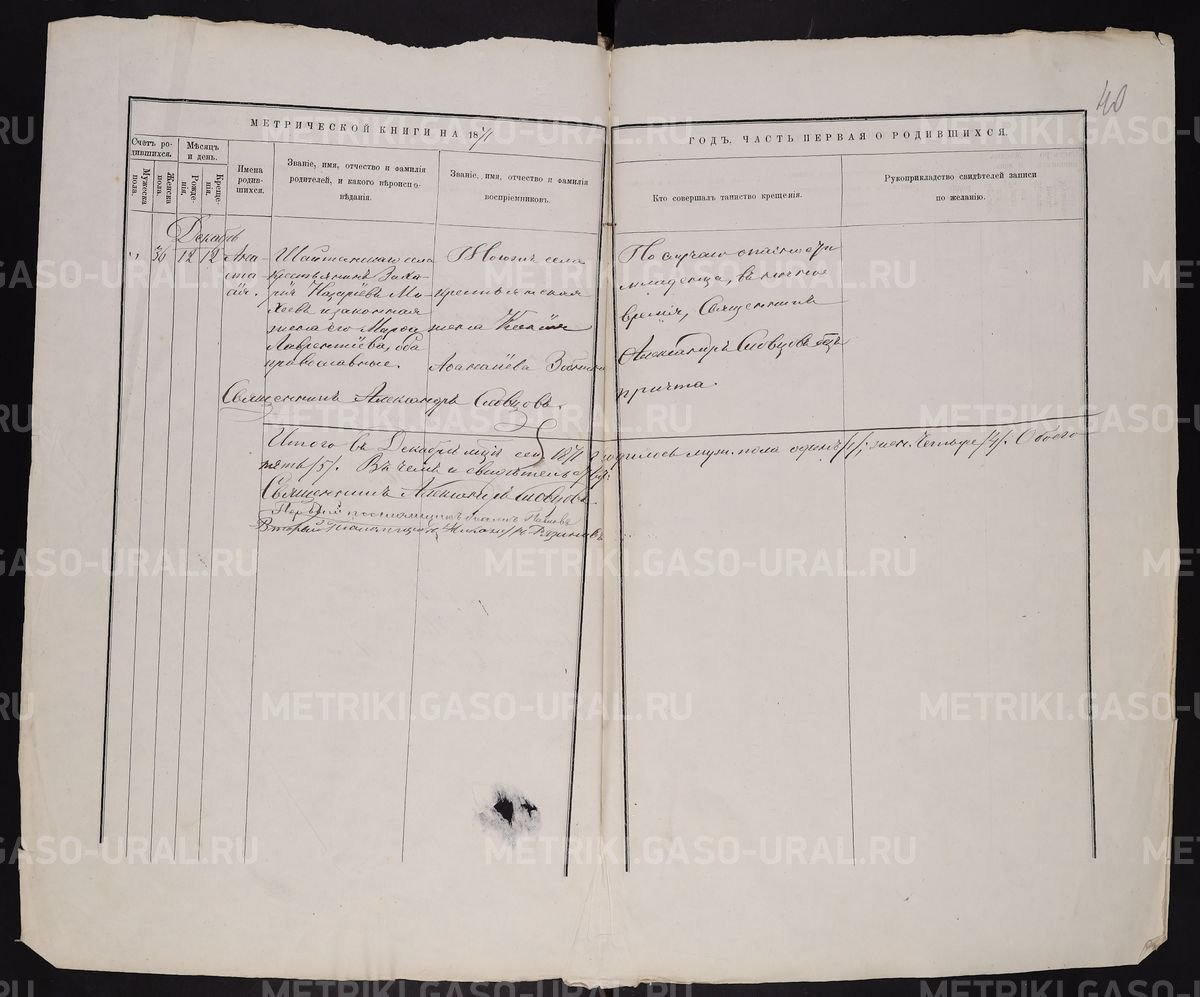 40
МЕТРИЧЕСКОЙ КНИГИ НА 1871
ГОДЪ, ЧАСТЬ ПЕРВАЯ О РОДИВШИХСЯ.
Счетъ ро-
дившихся.
Мужеска
пола.
Женска
пола.
Мѣсяцъ
и день.
Рожде-
нія.
Креще-
нія.
Имена
родив-
шихся.
Званіе, имя, отчество и фамилія
родителей, и какого вѣроиспо-
вѣданія.
Званіе, имя, отчество и фамилія
воспріемниковъ.
Кто совершалъ таинство крещенія.
Рукоприкладство свидѣтелей записи
по желанію.
Декабрь
36 12 12
Шайтанскаго села
крестьянинъ Заха-
рій Назаріевъ Ми-
хеевъ и законная
жена его
Лаврентіева, оба
православные.
села
крестьянская
жена
По случаю опасности
младенца, въ
время, Священникъ
Александръ Словцовъ безъ
причта.
Священникъ Александръ Словцовъ.
Итого въ Декабрѣ мцѣ сего 1871 г. родилось муж. пола одинъ /1/; жен. Четыре /4/. Обоего
пять /5/. Въ чемъ и свидѣтельствуютъ:
Священникъ Александръ Словцовъ
Первый псаломщикъ
Второй Псаломщикъ
METRIKI.GASO-URAL.RU